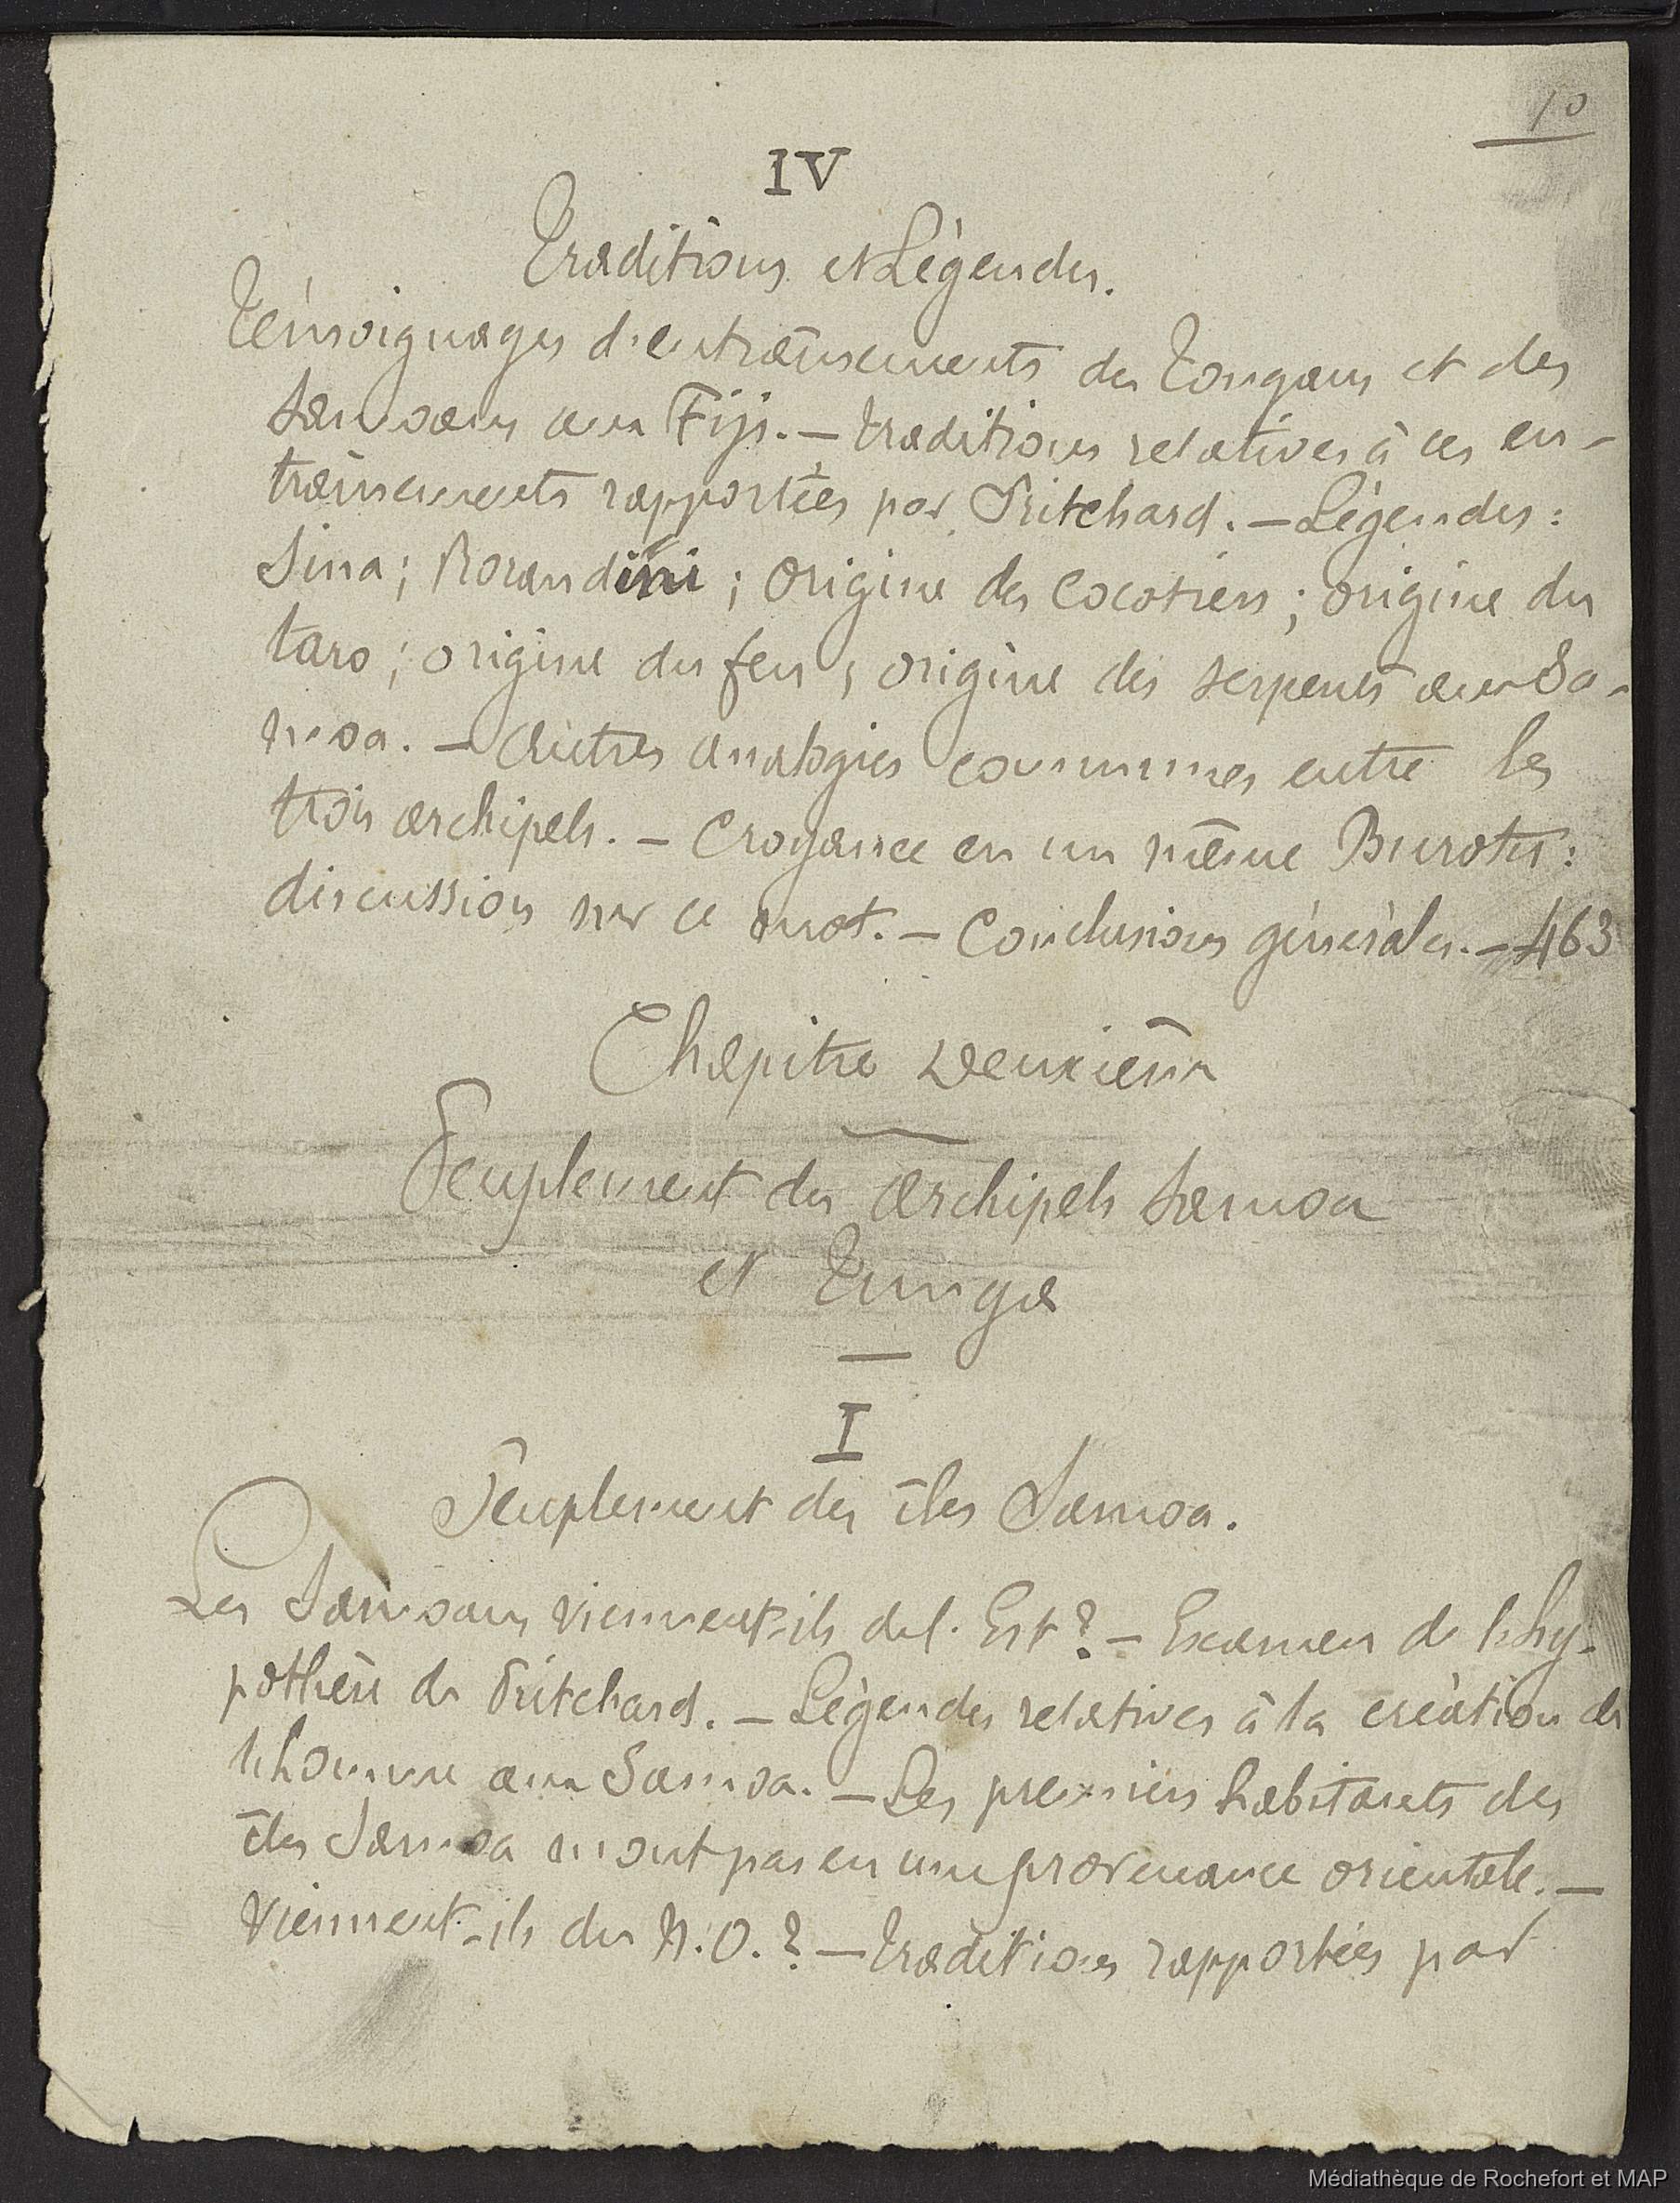 10
IV
Traditions et Légendes.
Témoignages d'entraînements des Tongans et des
Samoans aux Fiji. — Traditions relatives à ces en-
traînements rapportées par Pritchard. — Légendes :
Sina ; Rorandini ; origine des Cocotiers ; origine du
taro ; origine du feu ; origine des serpents aux Sa-
moa. — Autres analogies communes entre les
trois archipels. — Croyance en un même Burotu :
discussion sur ce mot. — Conclusions générales. — 463
Chapitre Deuxième
Peuplement des archipels Samoa
et Tunga
I
Peuplement des îles Samoa.
Les Samoans viennent-ils de l'Est ? — Examen de l'hy-
pothèse de Pritchard. — Légendes relatives à la création de
l'homme aux Samoa. — Les premiers habitants des
îles Samoa n'ont pas eu une provenance orientale. —
Viennent-ils du N.O. ? — Traditions rapportées par
Médiathèque de Rochefort et MAP